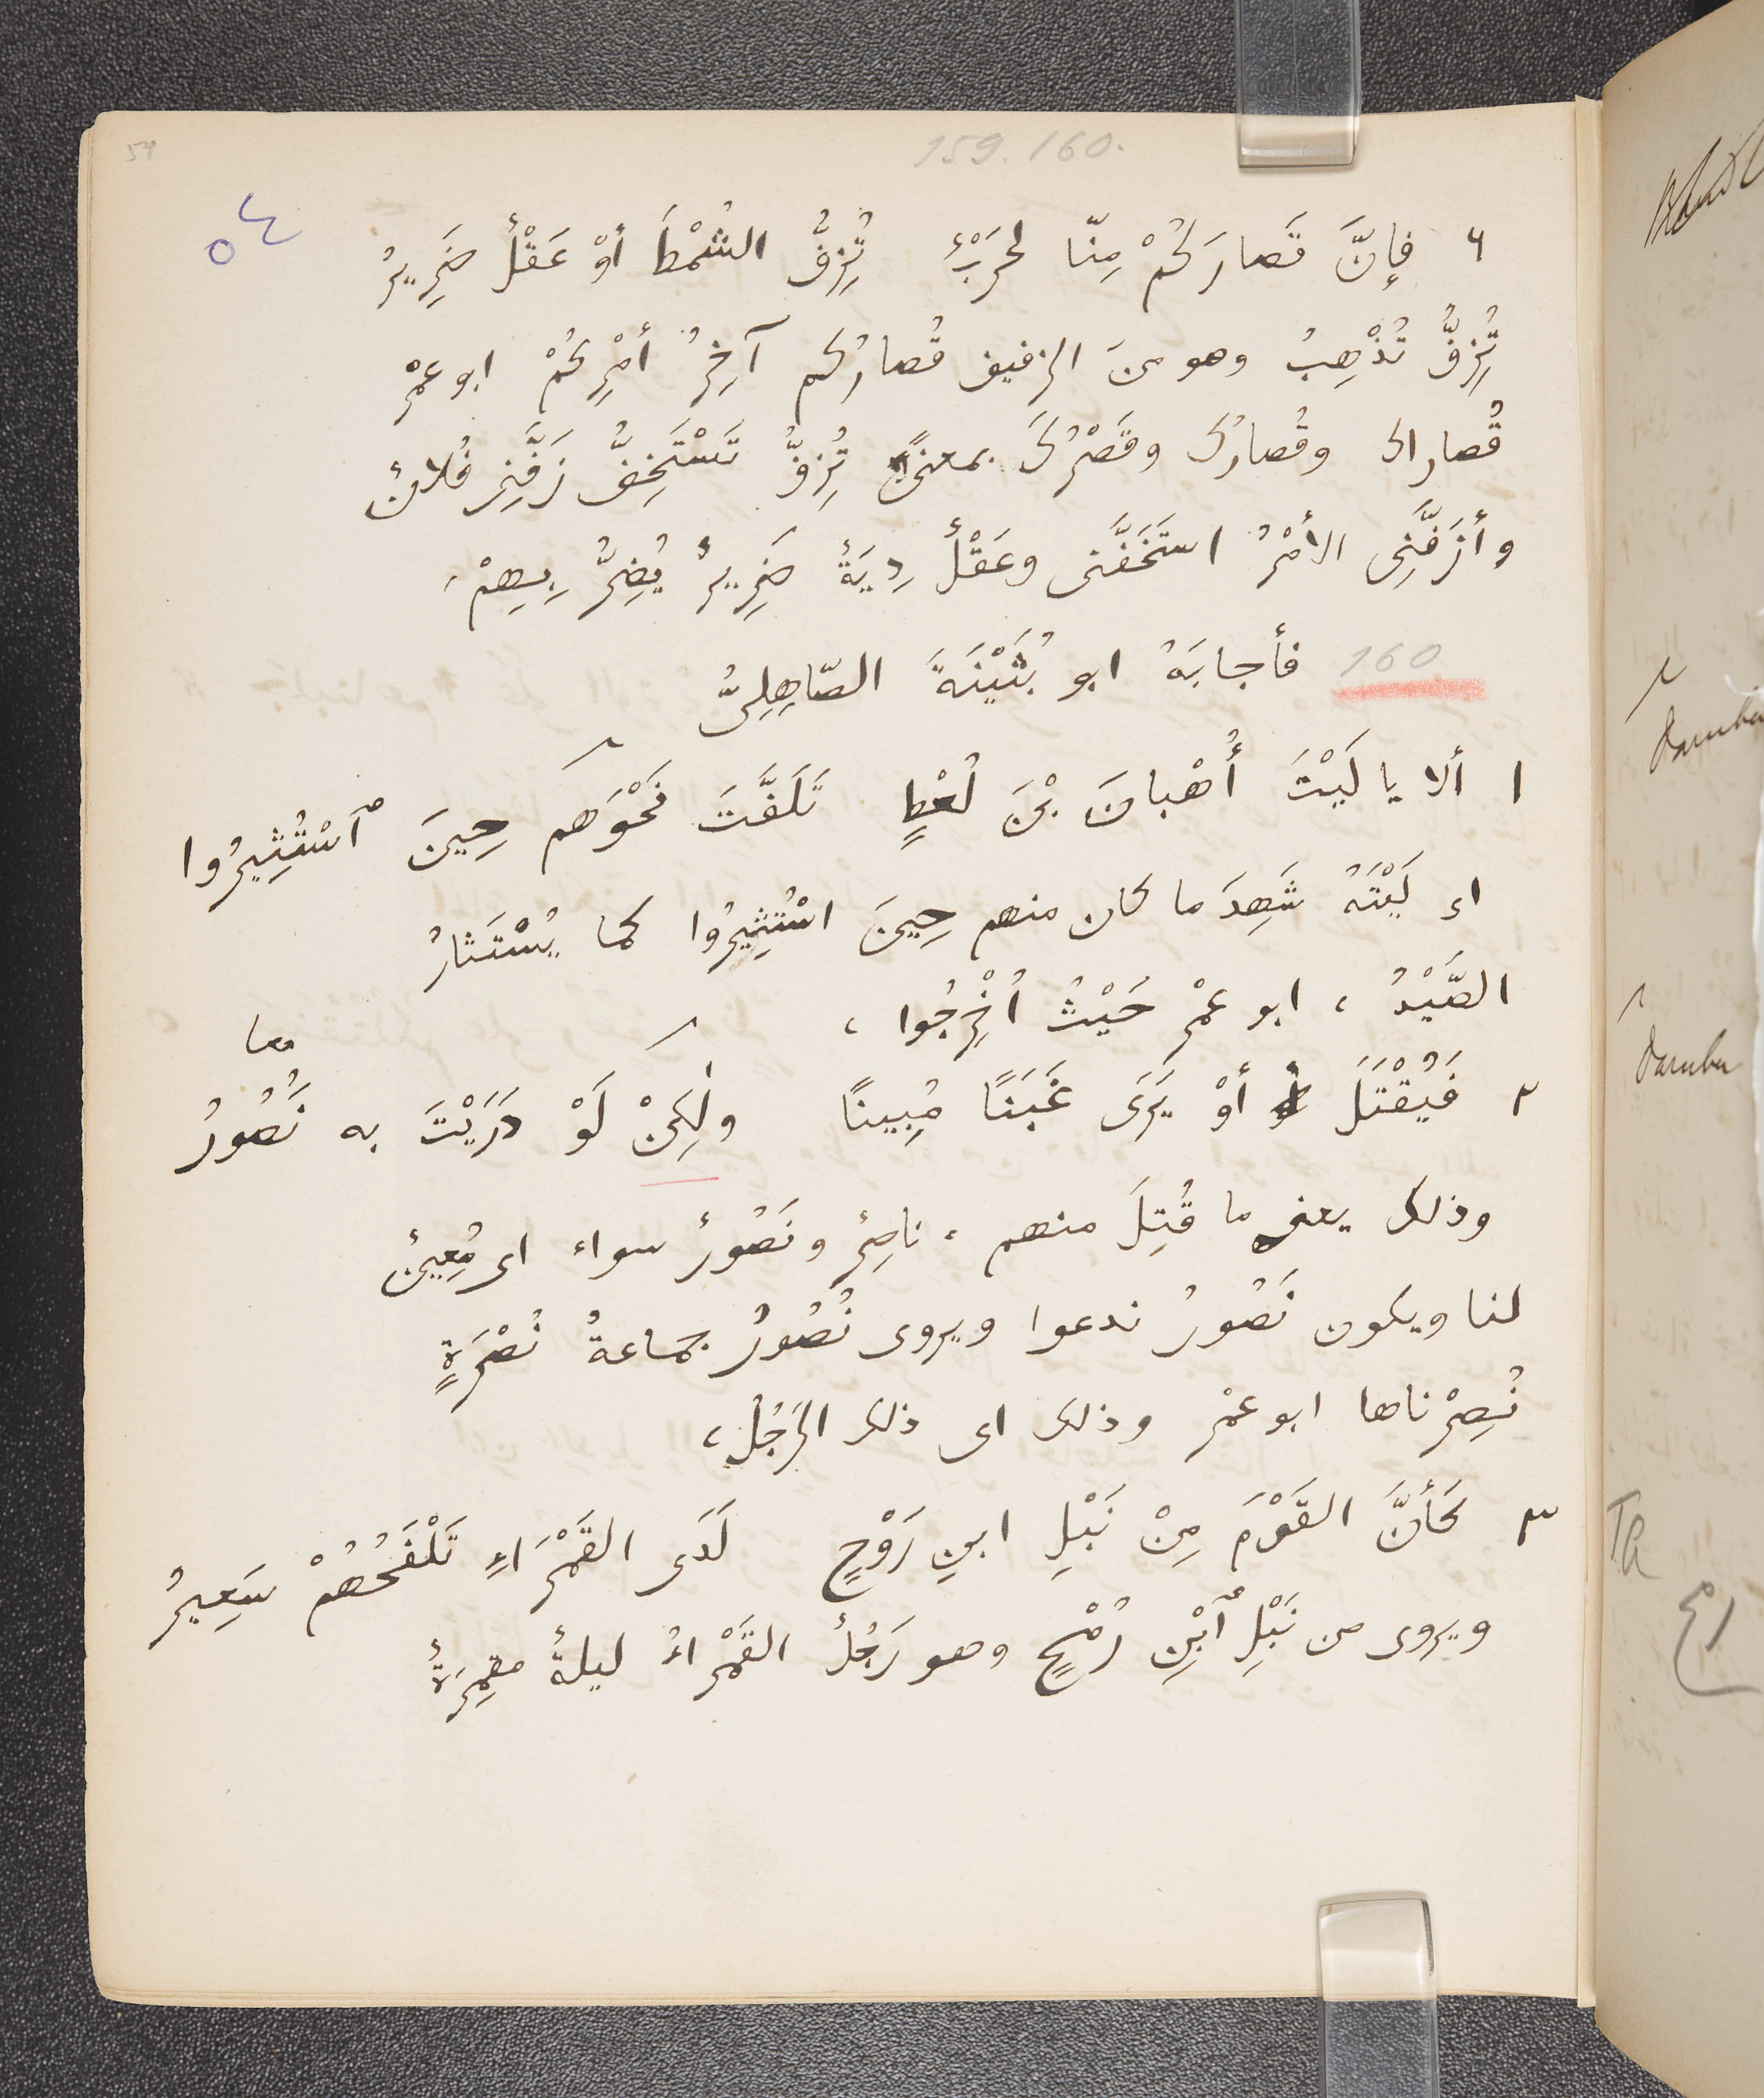 54
159. 160.
٥٤
٦ فإنَّ قَصارَكُمْ مِنّا لحَرْبٌ تُزِفُّ الشُمْطَ أوْ عَقْلٌ ضَرِيرُ
تُزِفُّ تُذْهِبُ وهو منَ الزفيف قُصارُكم آخِرُ أمْرِكُمْ ابو عمْر
قُصاراك وقُصارُك وقَصْرُكَ بمعنًى تُزِفُّ تَسْتَخِفُّ زَفَّنِى فُلانٌ
وأزَفَّنِى الأمْرُ استَخَفَّنى وعَقْلٌ دِيَةٌ ضَرِيرٌ يُضِرُّ بِهِمْ،
160 فأجابَهُ ابو بُثَيْنَةَ الصّاهِلِىُّ
١ ألا يا لَيْتَ أُهْبانَ بْنَ لُعْطٍ تَلَفَّتَ نَحْوَهم حِينَ ٱسْتُثِيرُوا
اى لَيْتَهُ شَهِدَ ما كان منهم حِينَ اسْتُثِيرُوا كما يُسْتَثارُ
الصَّيْدُ ، ابو عمْر حَيْثُ اُخْرِجُوا ،
معا
٢ فَيُقْتَلَ أوْ يَرَى غَبَنًا مُبِينًا ولٰكِنْ لَوْ دَرَيْتَ به نَُصُورُ
وذلك يعنى ما قُتِلَ منهم ، ناصِرٌ ونَصُورٌ سواء اى مُعِينٌ
لنا ويكون نَصُورُ ندعوا ويروى نُصُورُ جماعةُ نُصْرَةٍ
نُصِرْناها ابو عمْر وذلك اى ذلك الرَجُلُ ،
٣ كَأنَّ القَوْمَ مِنْ نَبْلِ ابنِ رَوْحٍ لَدَى القَمْرَاءِ تَلْفَحُهُمْ سَعِيرُ
ويروى من نَبْلِ ٱبْنِ رُمْحٍ وهو رَجُلٌ القَمْراءُ ليلةٌ مقمِرَةٌ